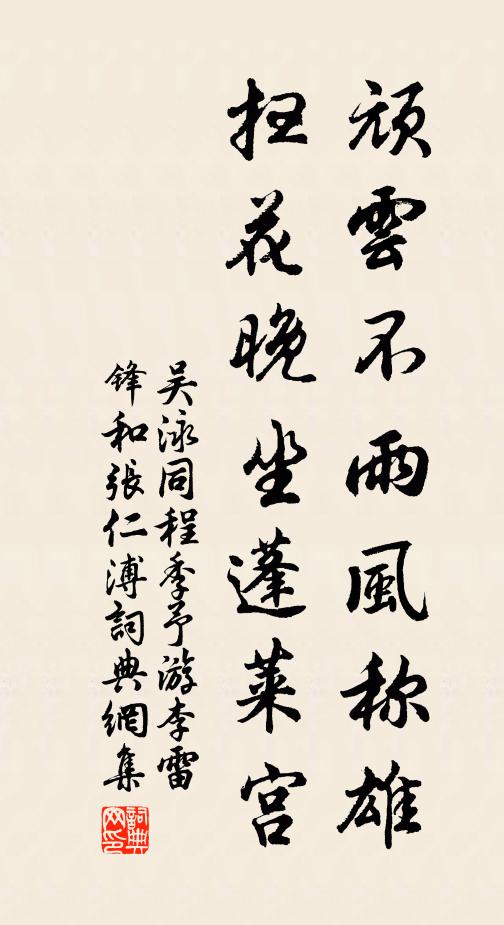 頑雲不雨風称雄
扫花晚坐蓬萊宫
吴泳同程季予游李雷
锋和張仁溥詞典網集
詞典
网印